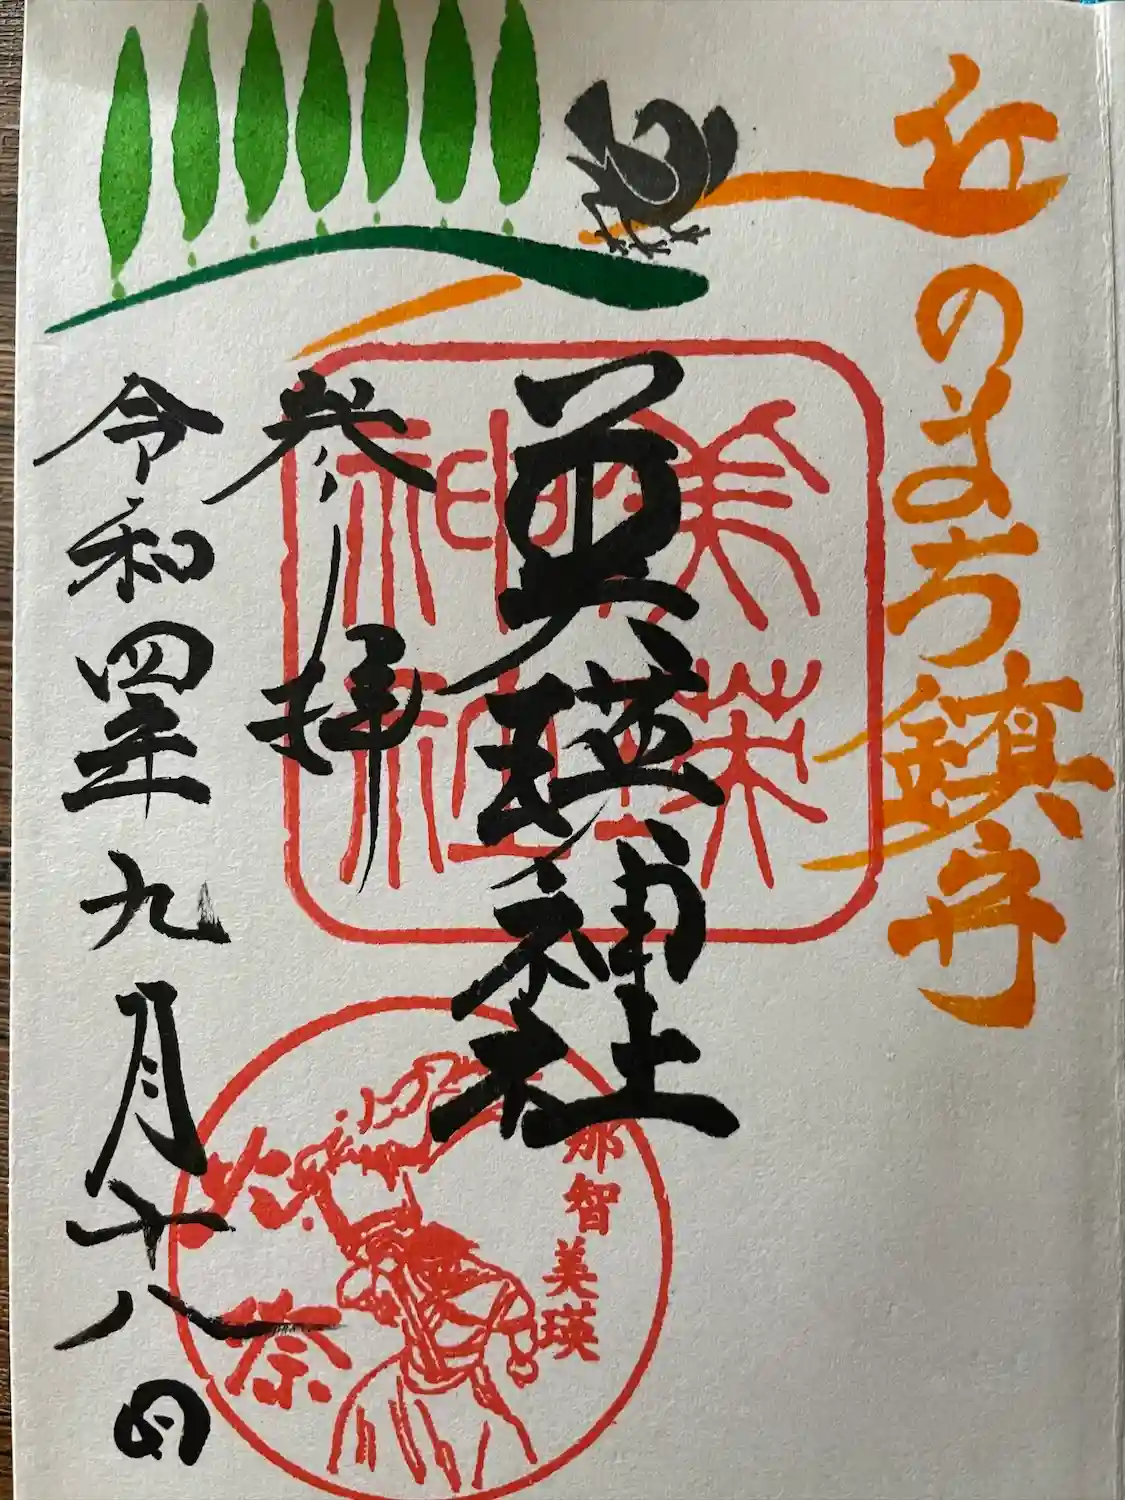 丘のまち鎮守
美瑛神社
参拝
令和四年九月十八日
美瑛
神社
那智
美瑛
火祭